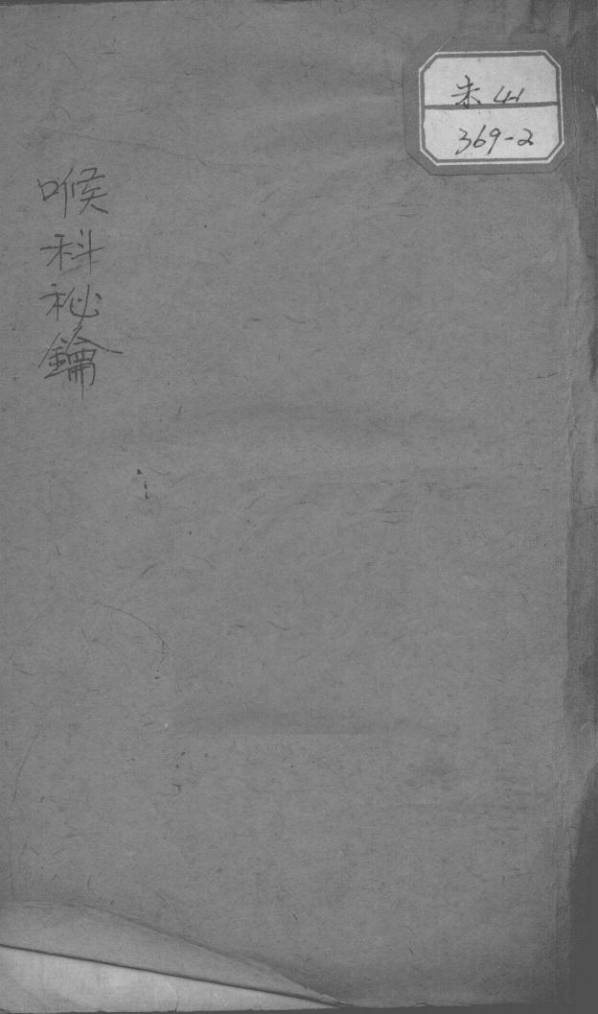 喉科祕鑰
未41
369-2